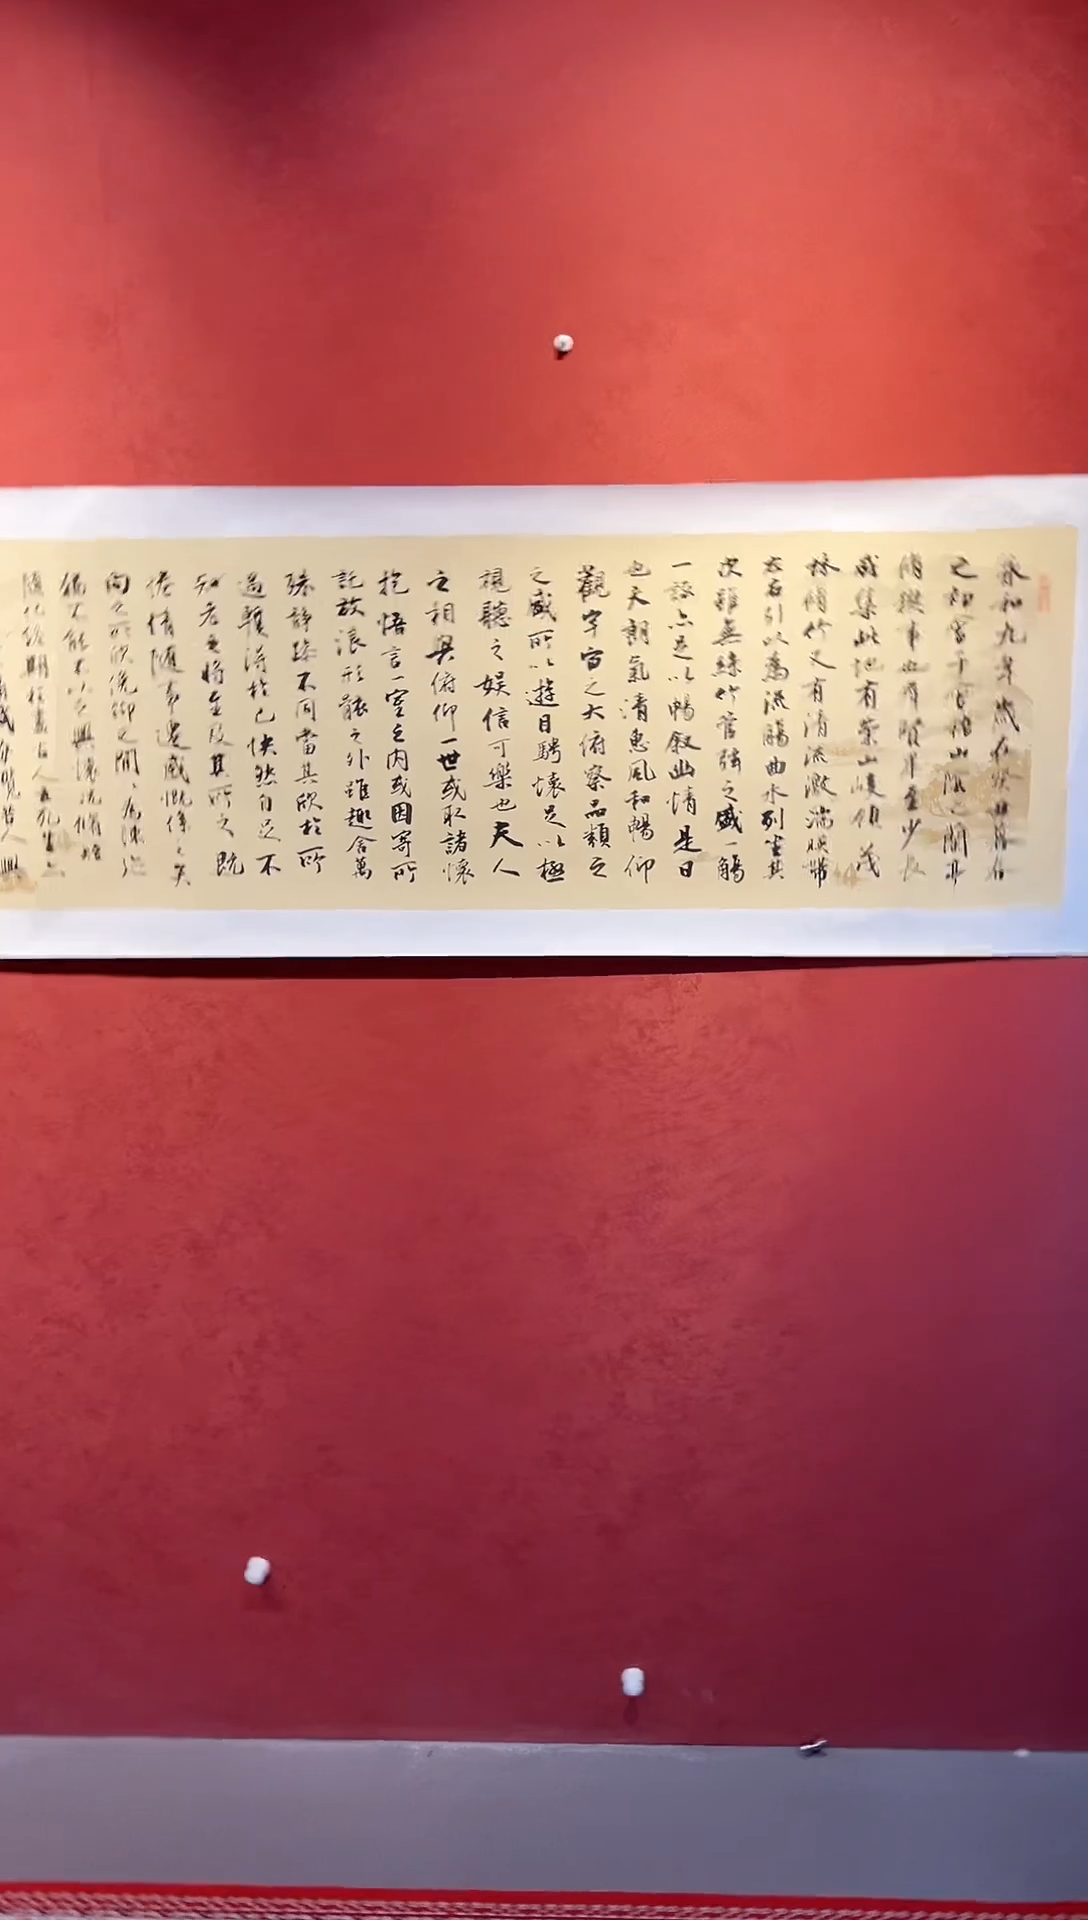 永和九年歲在癸丑暮春
之初會于會稽山陰之蘭亭
脩稧事也羣賢畢至少長
咸集此地有崇山峻領茂
林脩竹又有清流激湍映帶
左右引以為流觴曲水列坐其
次雖無絲竹管弦之盛一觴
一詠亦足以暢敘幽情是日
也天朗氣清惠風和暢仰
觀宇宙之大俯察品類之
盛所以遊目騁懷足以極
視聽之娛信可樂也夫人
之相與俯仰一世或取諸懷
抱悟言一室之内或因寄所
託放浪形骸之外雖趣舍萬
殊靜躁不同當其欣於所
遇暫得於己快然自足不
知老之將至及其所之既
惓情隨事遷感慨係之矣
向之所欣俛仰之間以為陳迹
猶不能不以之興懷況脩短
隨化終期於盡古人云死生亦
覽昔人興